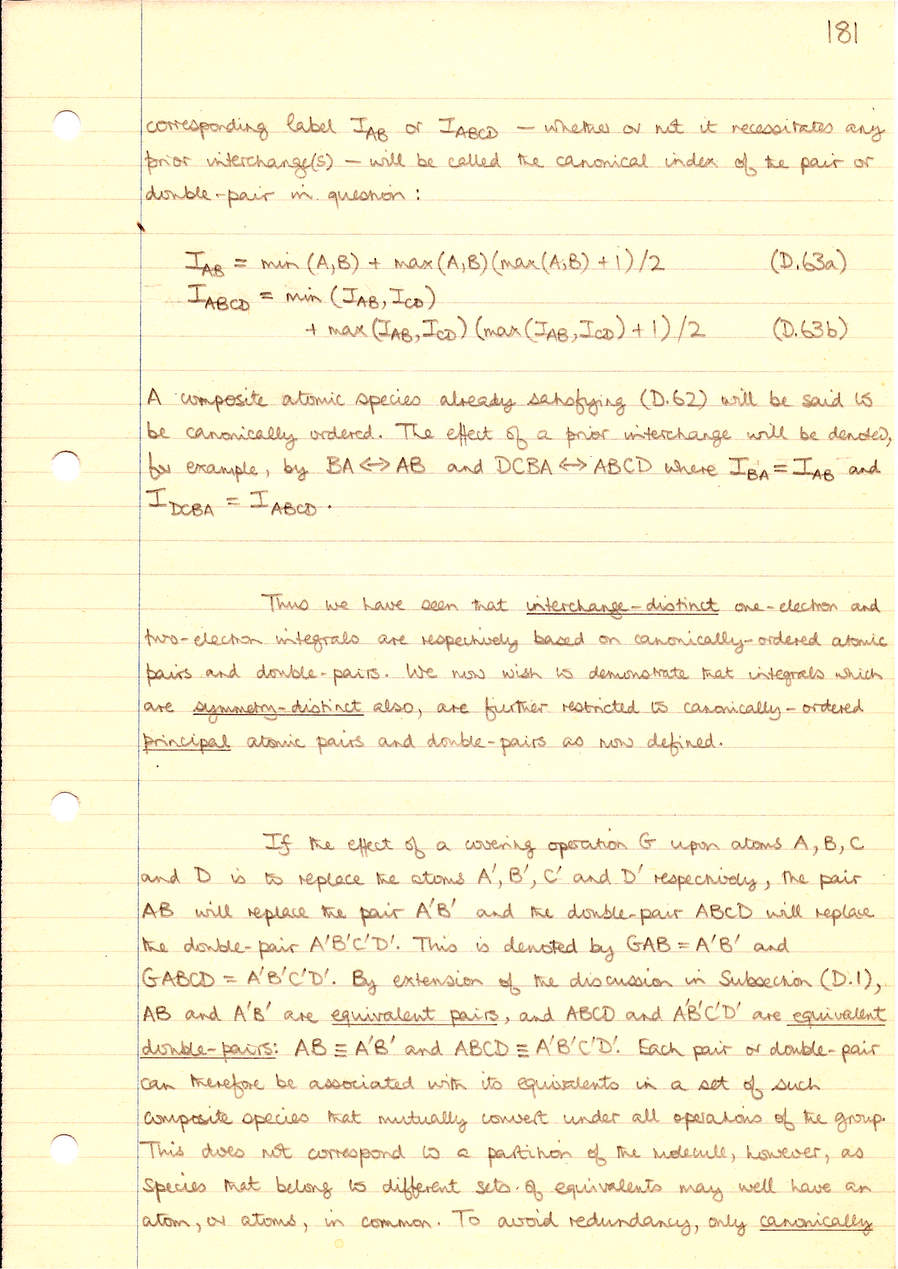 181
corresponding label I_AB or I_ABCD — whether or not it necessitates any
prior interchange(s) — will be called the canonical index of the pair or
double-pair in question :
I_AB = min (A,B) + max (A,B) (max (A,B) + 1) /2 (D.63a)
I_ABCD = min (I_AB, I_CD)
+ max (I_AB, I_CD) (max (I_AB, I_CD) + 1) /2 (D.63b)
A composite atomic species already satisfying (D.62) will be said to
be canonically ordered. The effect of a prior interchange will be denoted,
for example, by BA ⟷ AB and DCBA ⟷ ABCD where I_BA = I_AB and
I_DCBA = I_ABCD .
Thus we have seen that interchange-distinct one-electron and
two-electron integrals are respectively based on canonically-ordered atomic
pairs and double-pairs. We now wish to demonstrate that integrals which
are symmetry-distinct also, are further restricted to canonically-ordered
principal atomic pairs and double-pairs as now defined.
If the effect of a covering operation G upon atoms A, B, C
and D is to replace the atoms A', B', C' and D' respectively, the pair
AB will replace the pair A'B' and the double-pair ABCD will replace
the double-pair A'B'C'D'. This is denoted by GAB = A'B' and
GABCD = A'B'C'D'. By extension of the discussion in Subsection (D.1),
AB and A'B' are equivalent pairs, and ABCD and A'B'C'D' are equivalent
double-pairs: AB ≡ A'B' and ABCD ≡ A'B'C'D'. Each pair or double-pair
can therefore be associated with its equivalents in a set of such
composite species that mutually convert under all operations of the group.
This does not correspond to a partition of the molecule, however, as
species that belong to different sets of equivalents may well have an
atom, or atoms, in common. To avoid redundancy, only canonically